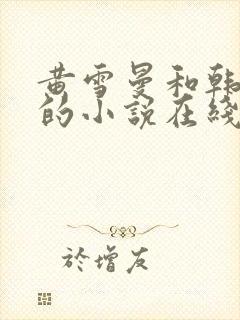 黄雪曼和韩
的小说在线
於增友